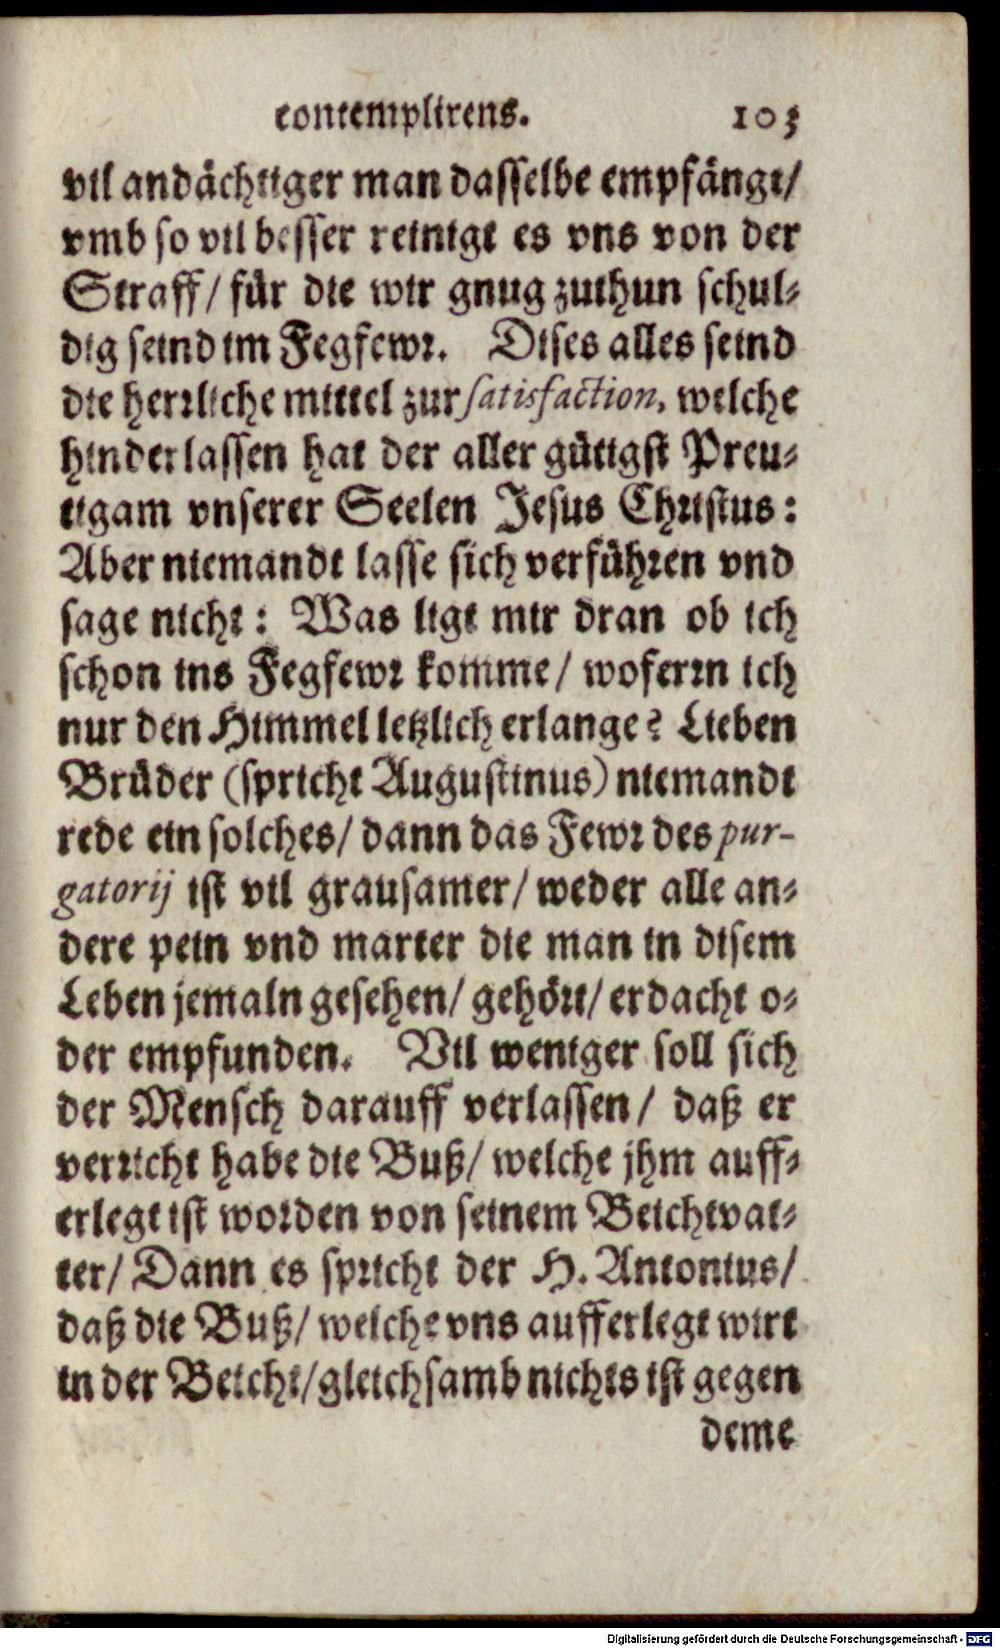 contemplirens. 103
vil andächtiger man dasselbe empfängt/
vmb so vil besser reinigt es vns von der
Straff/ für die wir gnug zuthun schul-
dig seind im Fegfewr. Dises alles seind
die herrliche mittel zur satisfaction, welche
hinderlassen hat der aller gütigst Preu-
tigam vnserer Seelen Jesus Christus:
Aber niemandt lasse sich verführen vnd
sage nicht: Was ligt mir dran ob ich
schon ins Fegfewr komme/ woferrn ich
nur den Himmel letzlich erlange? Lieben
Brüder (spricht Augustinus) niemandt
rede ein solches/ dann das Fewr des pur-
gatorij ist vil grausamer/ weder alle an-
dere pein vnd marter die man in disem
Leben jemaln gesehen/ gehört/ erdacht o-
der empfunden. Vil weniger soll sich
der Mensch darauff verlassen/ daß er
verricht habe die Buß/ welche jhm auff-
erlegt ist worden von seinem Beichtvat-
ter/ Dann es spricht der H. Antonius/
daß die Buß/ welche vns aufferlegt wirt
in der Beicht/ gleichsamb nichts ist gegen
deme
Digitalisierung gefördert durch die Deutsche Forschungsgemeinschaft - DFG